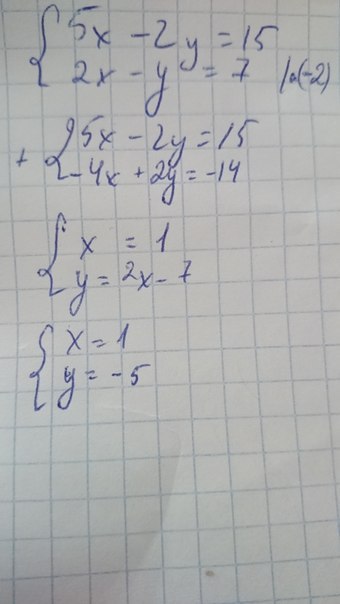 5x - 2y = 15
2x - y = 7 |·(-2)
+ 5x - 2y = 15
-4x + 2y = -14
x = 1
y = 2x - 7
x = 1
y = -5